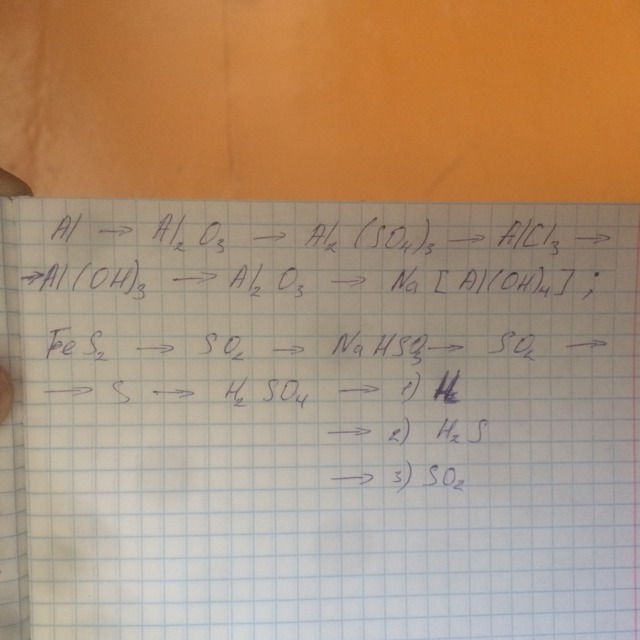 Al → Al₂O₃ → Al₂(SO₄)₃ → AlCl₃ →
→ Al(OH)₃ → Al₂O₃ → Na[Al(OH)₄];
FeS₂ → SO₂ → NaHSO₃ → SO₂ →
→ S → H₂SO₄ → 1) H₂
→ 2) H₂S
→ 3) SO₂